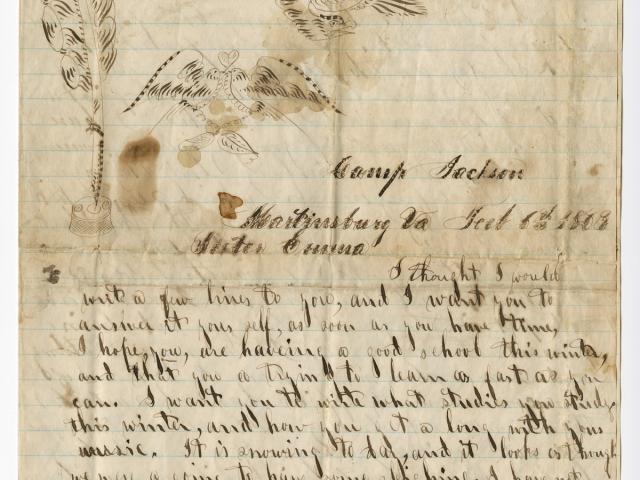 Camp Jackson
Martinsburg Va Feb 6th 1863
Sister Emma
I thought I would
write a few lines to you, and I want you to
answer it your self, as soon as you have time,
I hope, you, are haveing a good school this winter,
and that you a trying to learn as fast as you
can. I want you to write what studies you study
this winter, and how you get a long with your
mussic. It is snowing to day, and it looks as though
we were a going to have some sleighing, I have not